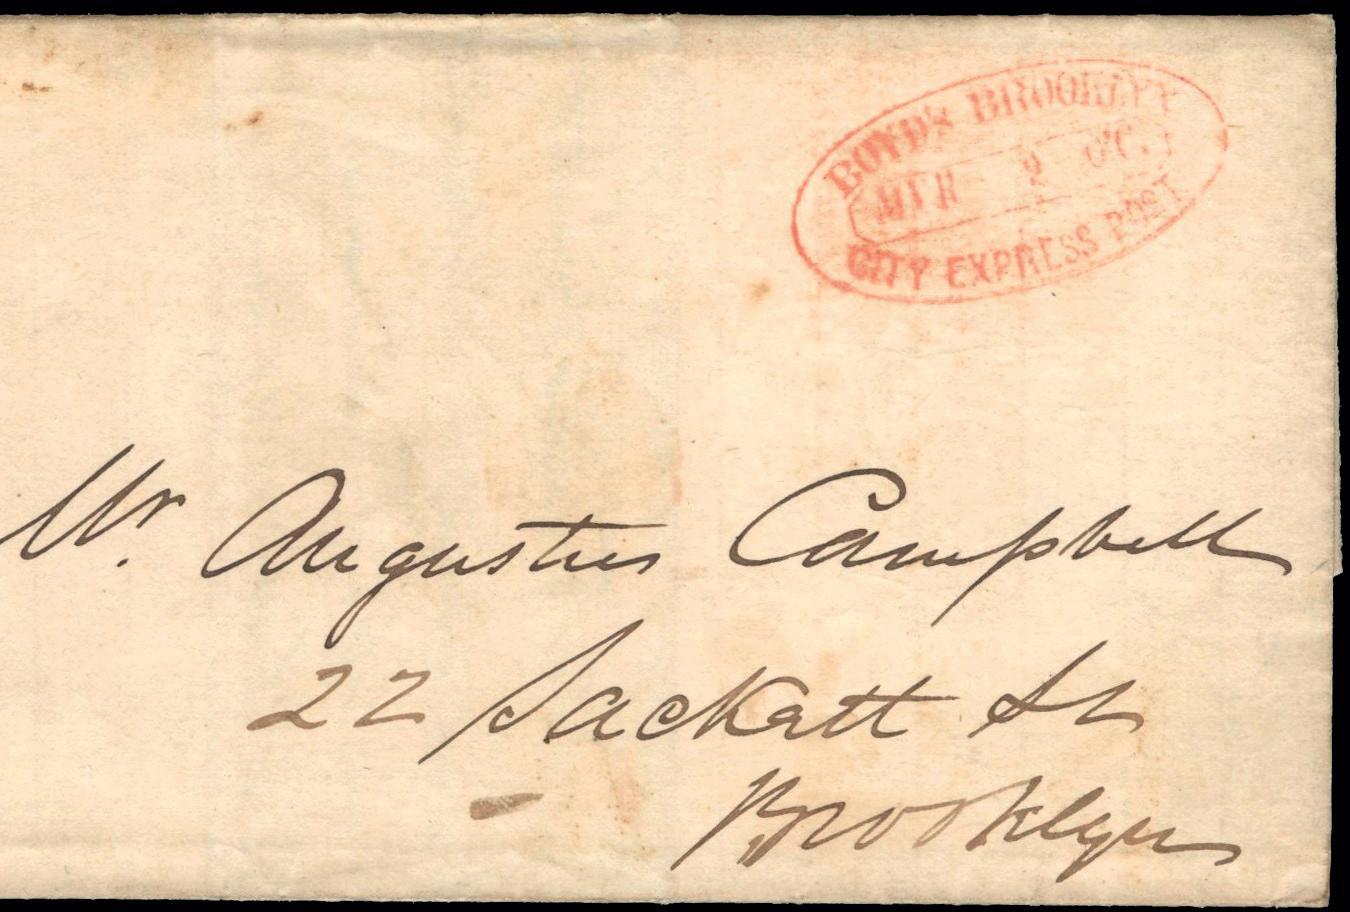 BOYD'S BROOKLYN
MAR 2
CITY EXPRESS POST
Mr. Augustus Campbell
22 Sackett St
Brooklyn